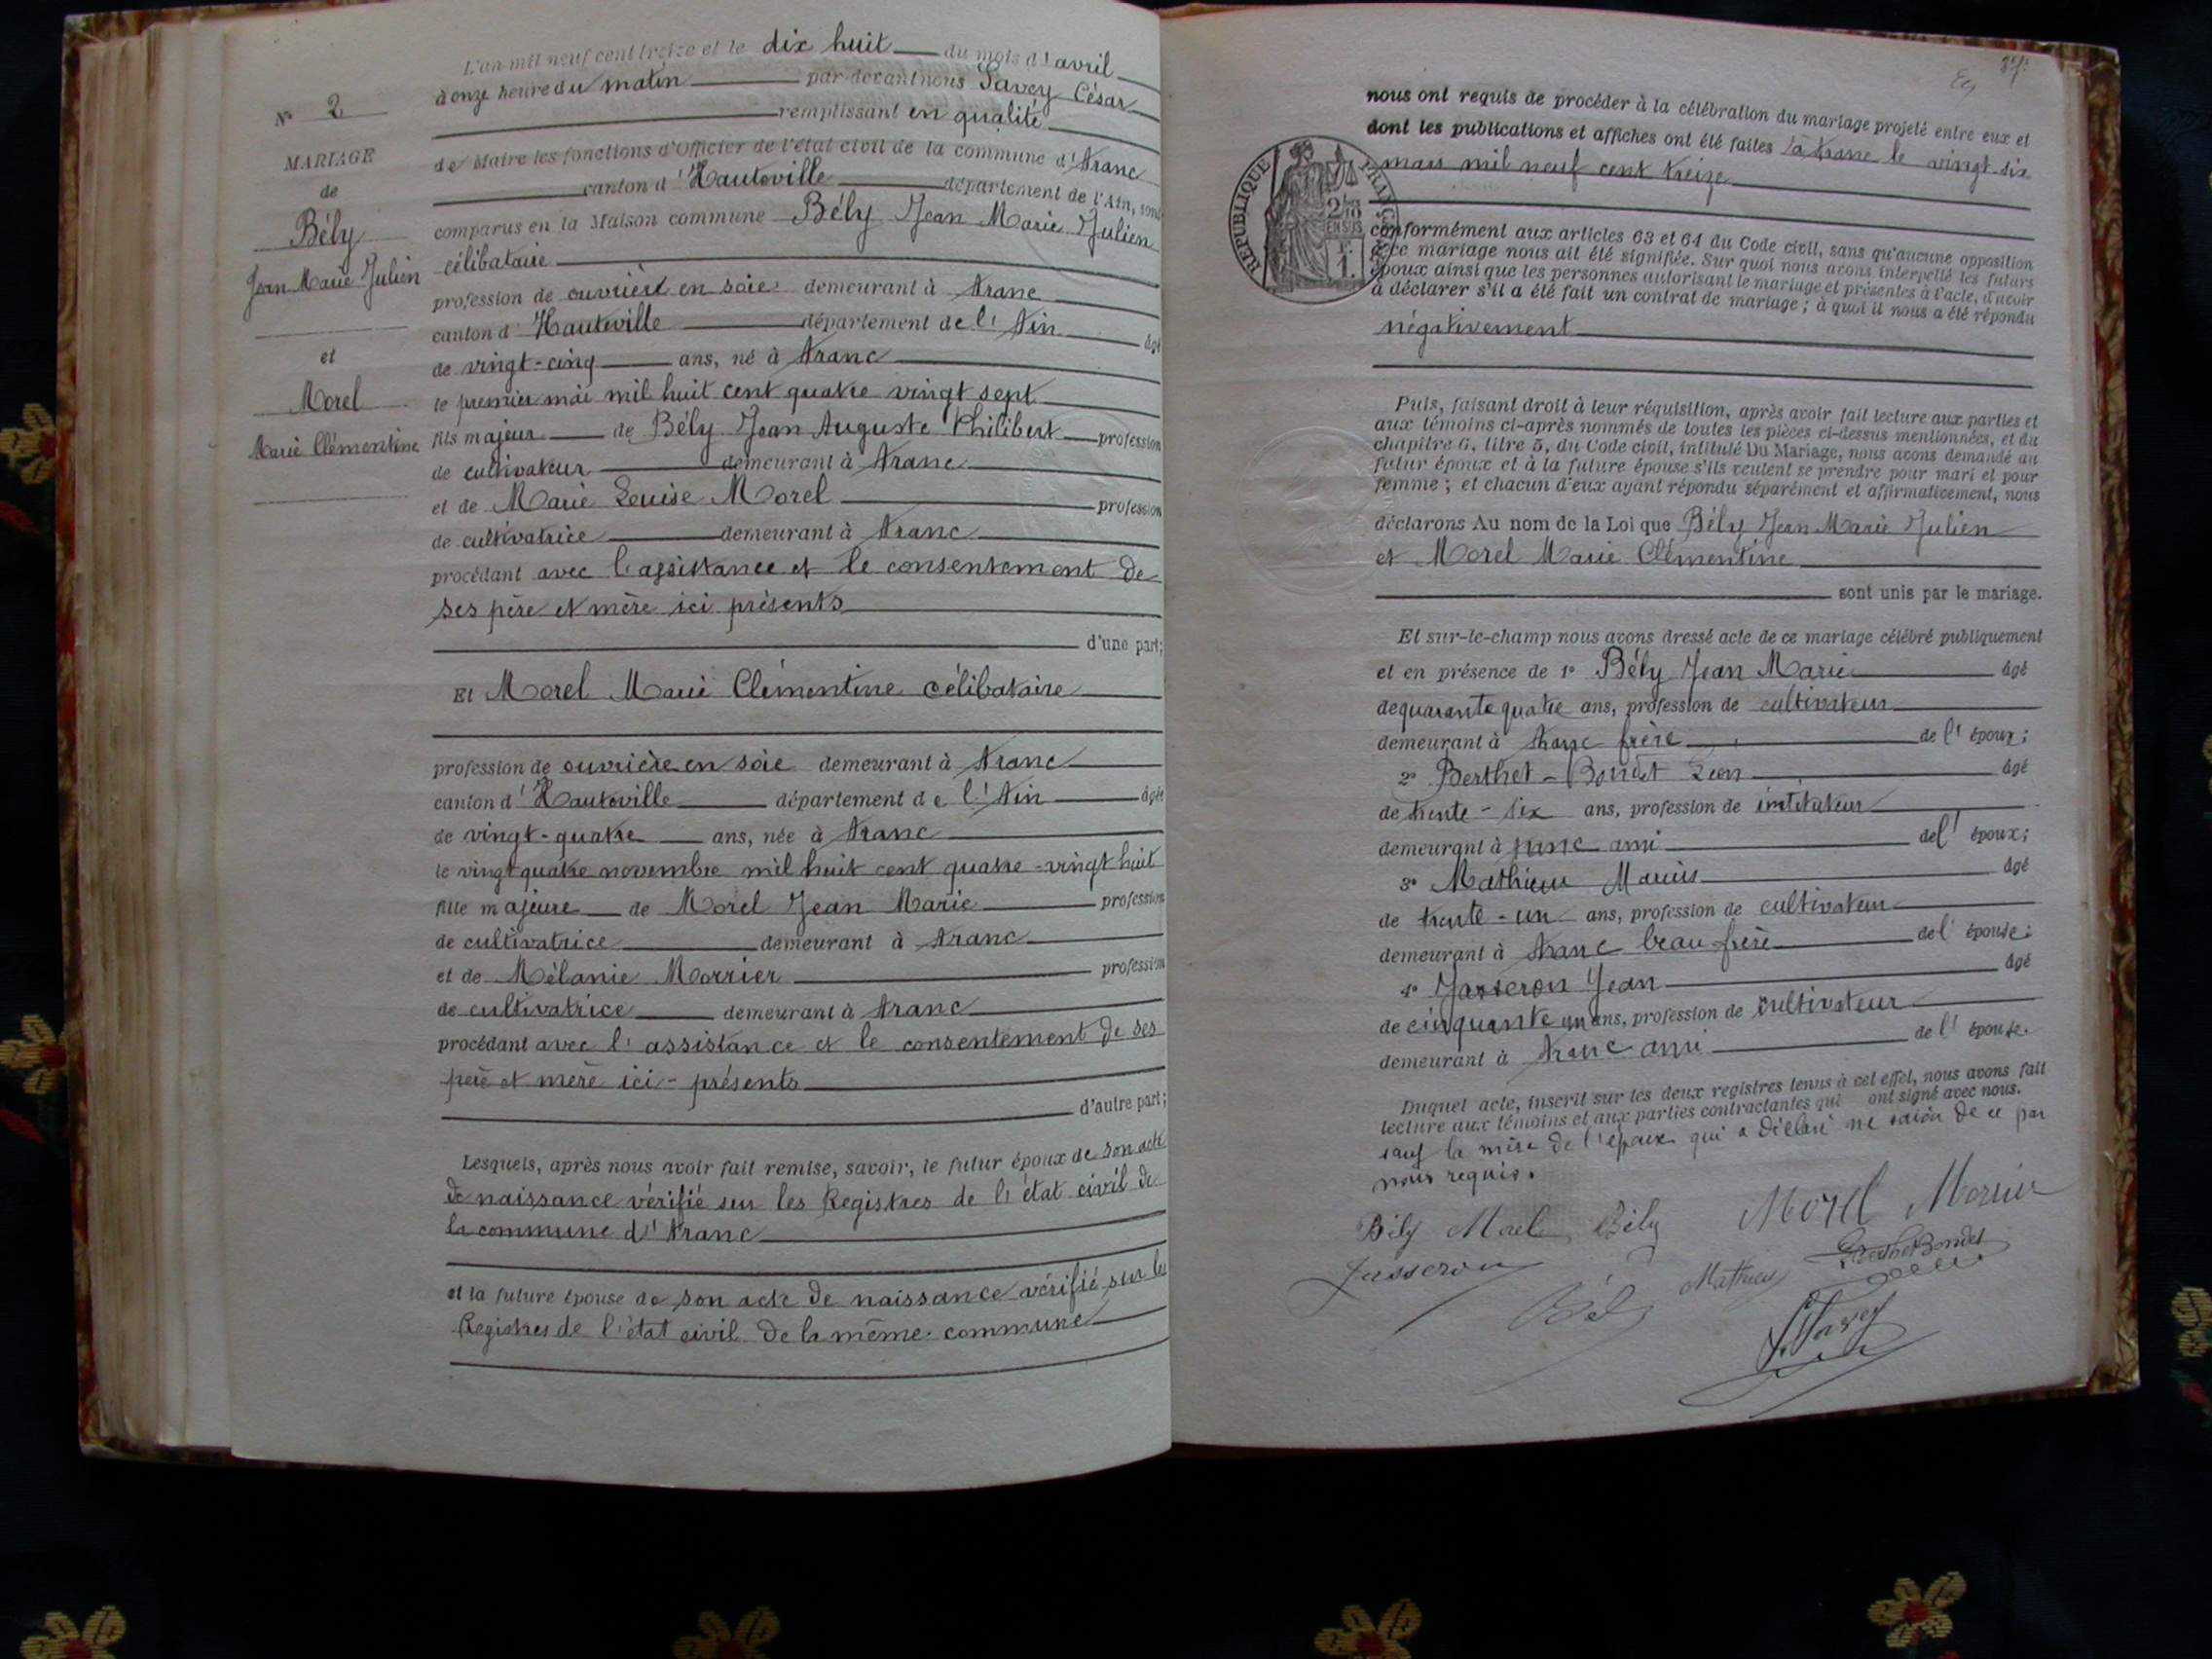 L'an mil neuf cent treize et le dix huit du mois d'avril
à onze heure du matin par-devant nous Savey César
remplissant en qualité
de Maire les fonctions d'Officier de l'état civil de la commune d'Aranc
canton d'Hauteville département de l'Ain, sont
comparus en la Maison commune Bély Jean Marie Julien
célibataire
profession de ouvrière en soie demeurant à Aranc
canton d'Hauteville département de l'Ain âgé
de vingt-cinq ans, né à Aranc
le premier mai mil huit cent quatre vingt sept
fils majeur de Bély Jean Auguste Philibert profession
de cultivateur demeurant à Aranc
et de Marie Louise Morel profession
de cultivatrice demeurant à Aranc
procédant avec l'assistance et le consentement de
ses père et mère ici présents
d'une part;
Et Morel Marie Clémentine célibataire
profession de ouvrière en soie demeurant à Aranc
canton d'Hauteville département de l'Ain âgée
de vingt-quatre ans, née à Aranc
le vingt quatre novembre mil huit cent quatre-vingt huit
fille majeure de Morel Jean Marie profession
de cultivatrice demeurant à Aranc
et de Mélanie Morrier profession
de cultivatrice demeurant à Aranc
procédant avec l'assistance et le consentement de ses
père et mère ici-présents
d'autre part;
Lesquels, après nous avoir fait remise, savoir, le futur époux de son acte
de naissance vérifié sur les Registres de l'état civil de
la commune d'Aranc
et la future épouse de son acte de naissance vérifié sur les
Registres de l'état civil de la même commune
N° 2
MARIAGE
de
Bély
Jean Marie Julien
et
Morel
Marie Clémentine
nous ont requis de procéder à la célébration du mariage projeté entre eux et
dont les publications et affiches ont été faites à Aranc le vingt-six
mars mil neuf cent treize
conformément aux articles 63 et 64 du Code civil, sans qu'aucune opposition
à ce mariage nous ait été signifiée. Sur quoi nous avons interpellé les futurs
époux ainsi que les personnes autorisant le mariage et présentes à l'acte, d'avoir
à déclarer s'il a été fait un contrat de mariage; à quoi il nous a été répondu
négativement
Puis, faisant droit à leur réquisition, après avoir fait lecture aux parties et
aux témoins ci-après nommés de toutes les pièces ci-dessus mentionnées, et du
chapitre 6, titre 5, du Code civil, intitulé Du Mariage, nous avons demandé au
futur époux et à la future épouse s'ils veulent se prendre pour mari et pour
femme; et chacun d'eux ayant répondu séparément et affirmativement, nous
déclarons Au nom de la Loi que Bély Jean Marie Julien
et Morel Marie Clémentine
sont unis par le mariage.
Et sur-le-champ nous avons dressé acte de ce mariage célébré publiquement
et en présence de 1° Bély Jean Marie âgé
de quarante quatre ans, profession de cultivateur
demeurant à Aranc frère de l'époux;
2° Berthet-Bondet Léon âgé
de trente-six ans, profession de instituteur
demeurant à Aranc ami de l'époux;
3° Mathieu Marius âgé
de trente-un ans, profession de cultivateur
demeurant à Aranc beau frère de l'épouse;
4° Jasseron Jean âgé
de cinquante un ans, profession de cultivateur
demeurant à Aranc ami de l'épouse.
Duquel acte, inscrit sur les deux registres tenus à cet effet, nous avons fait
lecture aux témoins et aux parties contractantes qui ont signé avec nous.
sauf la mère de l'époux qui a déclaré ne savoir de ce par
nous requis.
Bély Morel Bély Morel Morrier
Jasseron Bély Mathieu Berthet Bondet
Savey
RÉPUBLIQUE FRANÇAISE
2/10
EN SUS
1 F.